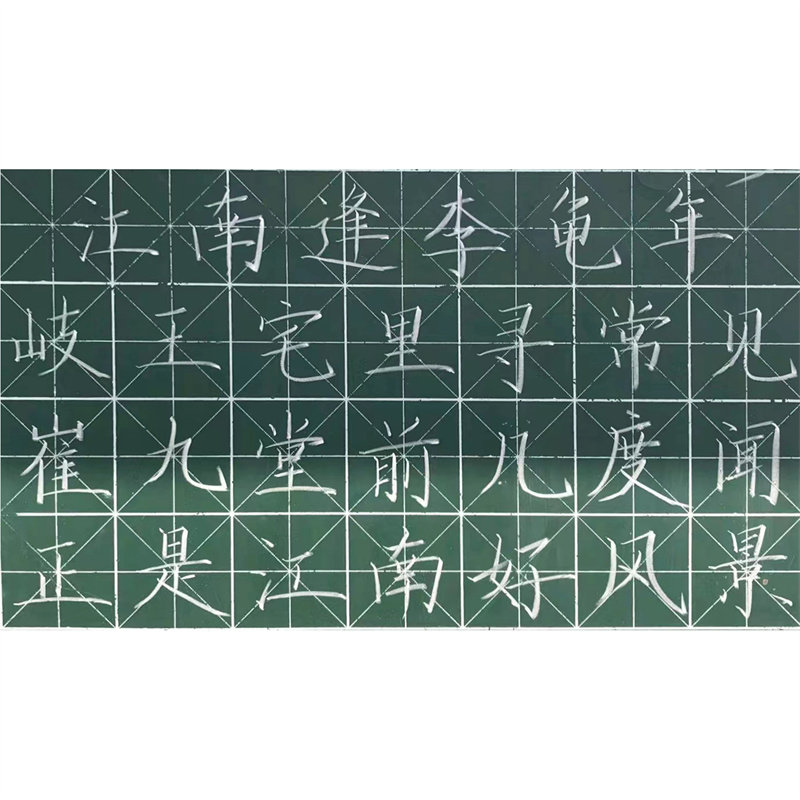 江南逢李龟年
岐王宅里寻常见
崔九堂前几度闻
正是江南好风景